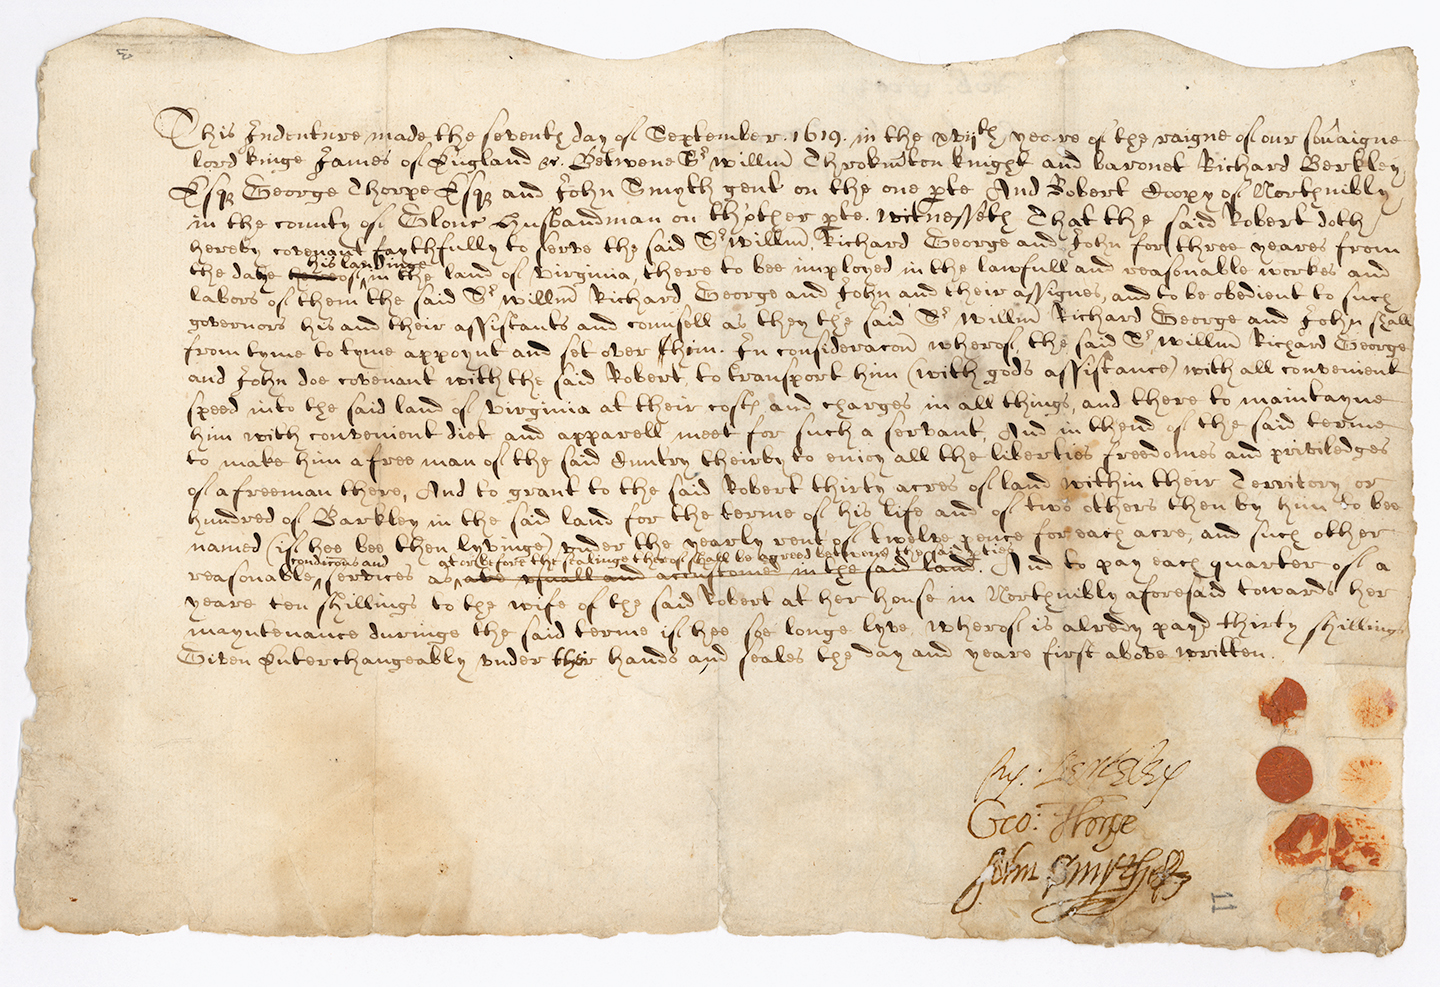 This Indenture made the seventh day of September. 1619. in the xvijth yeare of the raigne of our sov'aigne
lord kinge James of England &c. Betwene Sr willm Throkm'ton knight and baronet Richard Berkley
Esqr George Thorpe Esqr and John Smyth gent on the one p'te And Robert Coopy of Northnibly
in the county of Glouc' husbandman on th'other p'te. witnesseth That the said Robert doth
hereby covenant faythfully to serve the said Sr willm, Richard George and John for three yeares from
his landinge
the daye of in the land of virginia, there to bee imployed in the lawfull and reasonable workes and
labors of them the said Sr willm Richard George and John and their assignes, and to be obedient to such
governors his and their assistants and counsell as they the said Sr willm Richard George and John shall
from tyme to tyme appoynt and set over him. In consideracon wherof, the said Sr willm Richard George
and John doe covenant with the said Robert, to transport him (with gods assistance) with all convenient
speed into the said land of virginia at their costs and charges in all things, and there to maintayne
him with convenient diet and apparell meet for such a servant, And in thend of the said terme
to make him a free man of the said Cuntry theirby to enioy all the liberties freedomes and priviledges
of a freeman there, And to grant to the said Robert thirty acres of land within their Territory or
hundred of Barkley in the said land for the terme of his life and of two others then by him to bee
named (if hee bee then lyvinge) under the yearly rent of twelve pence for each acre, and such other
condicons and at or before the sealinge therof shall be agreed betwene the said p'ties
reasonable services as are usuall and accustomed in the said land. And to pay each quarter of a
yeare ten shillings to the wife of the said Robert at her house in Northnibly aforesaid towards her
mayntenance duringe the said terme if hee soe longe lyve, wherof is alredy payd thirty shillings
Given Enterchangeably under their hands and seales the day and yeare first above written.
Ry. Berkley
Geo: Thorpe
John Smyth
11
3